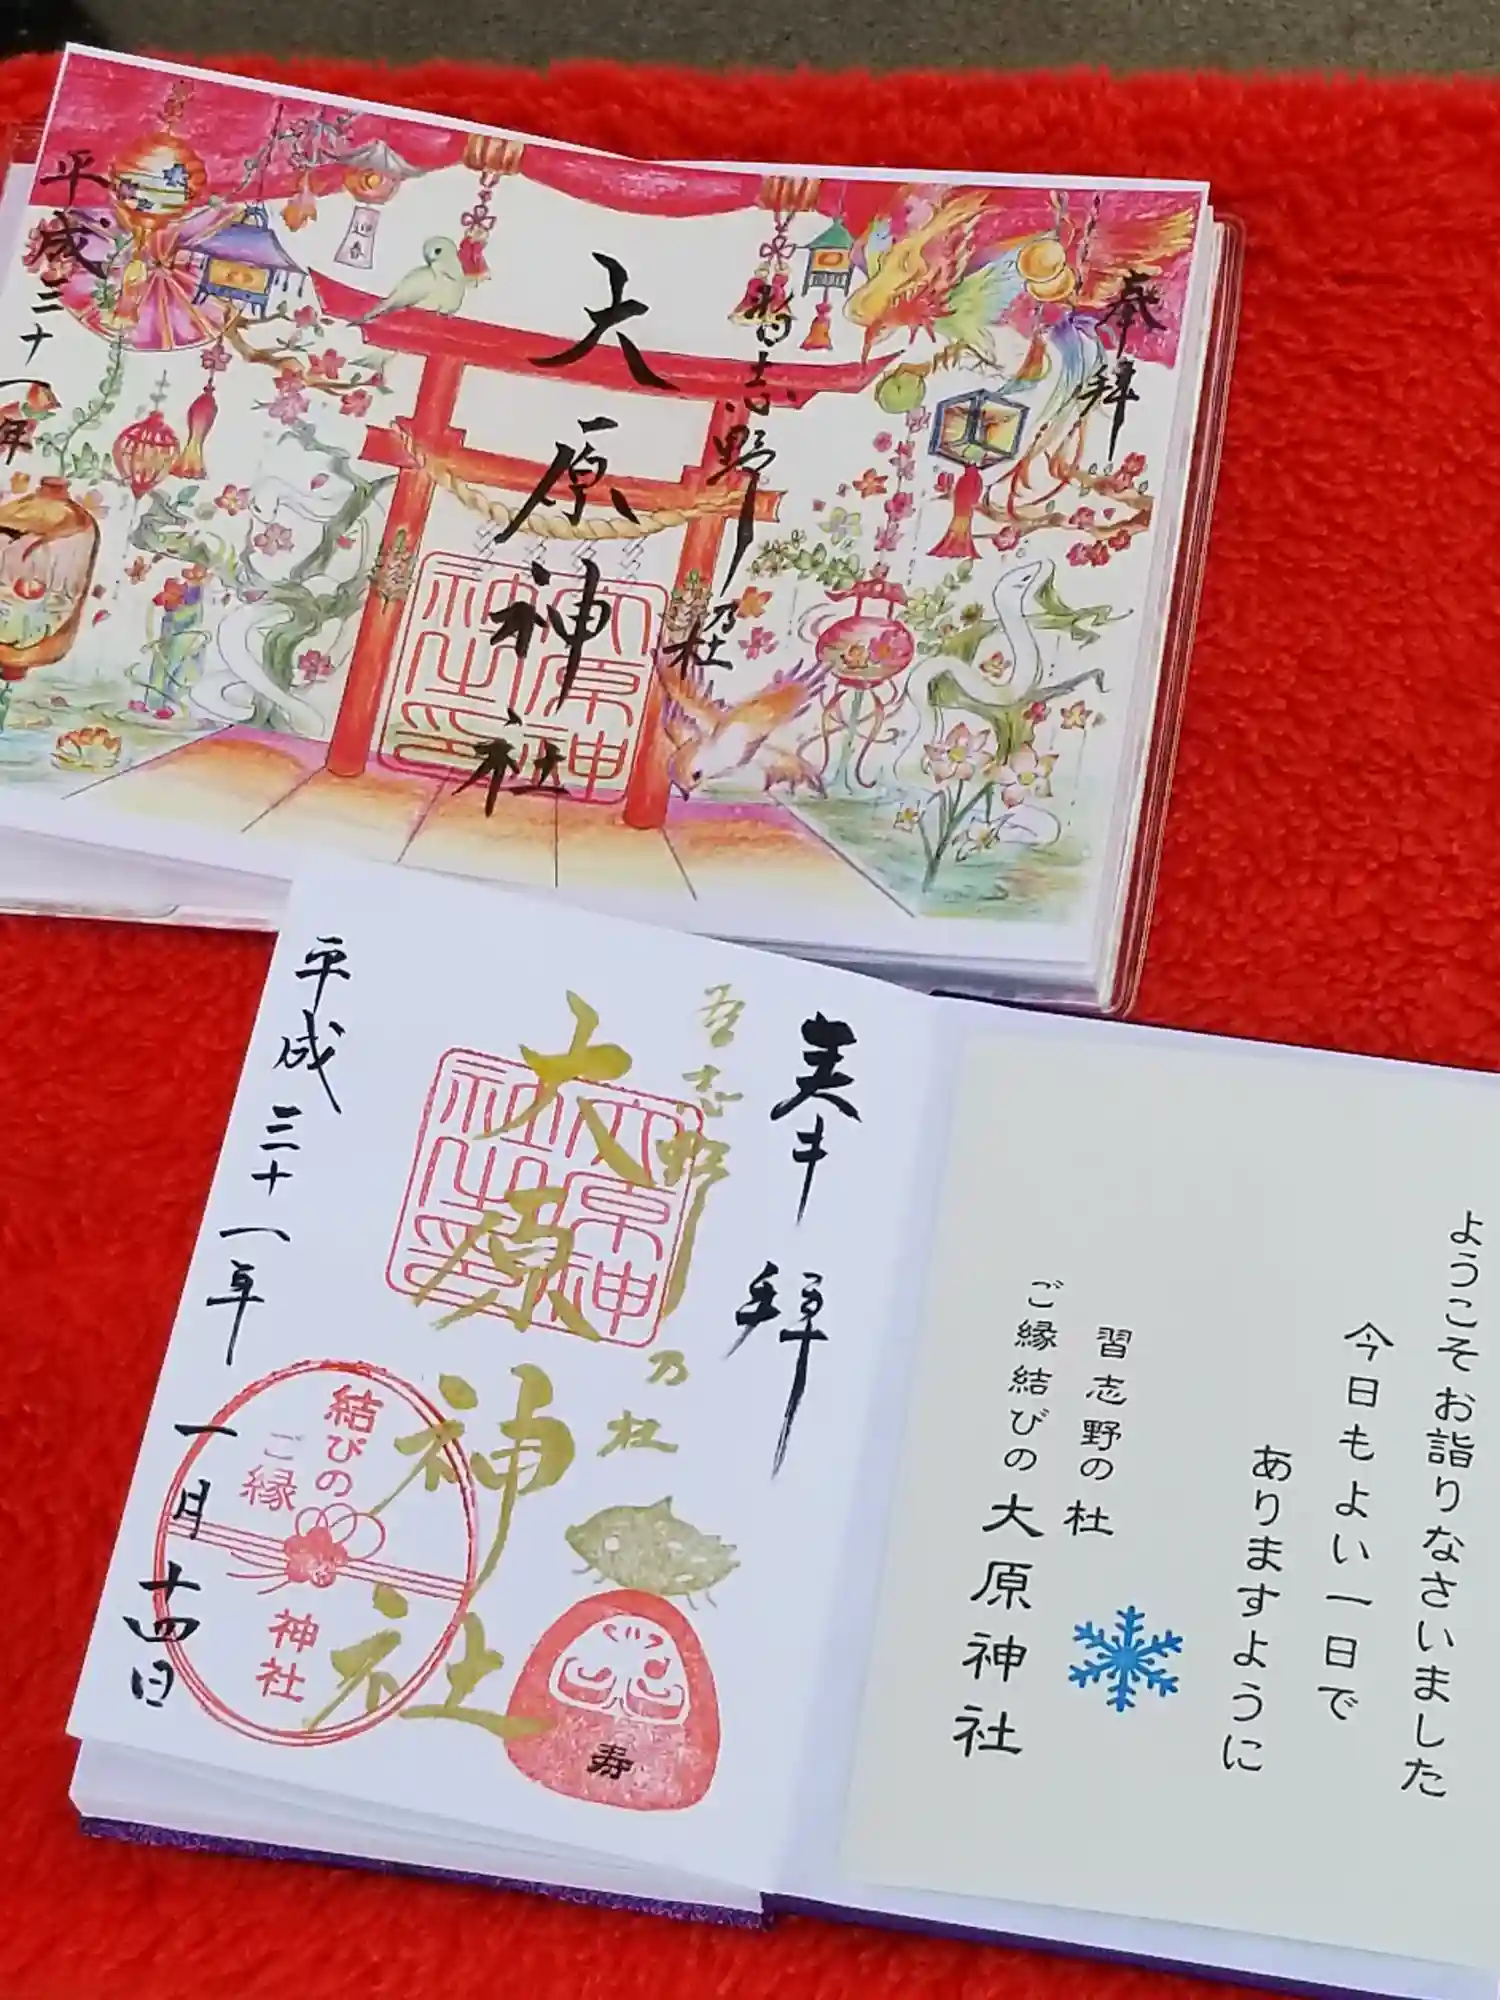 奉拝
習志野
乃杜
大原神社
大原神
社之印
迎春
平成三十一年
奉拝
習志野
乃杜
大原神社
大原神
社之印
平成三十一年
一月十四日
結びの
ご縁
神社
寿
ようこそお詣りなさいました
今日もよい一日で
ありますように
習志野の杜
ご縁結びの大原神社